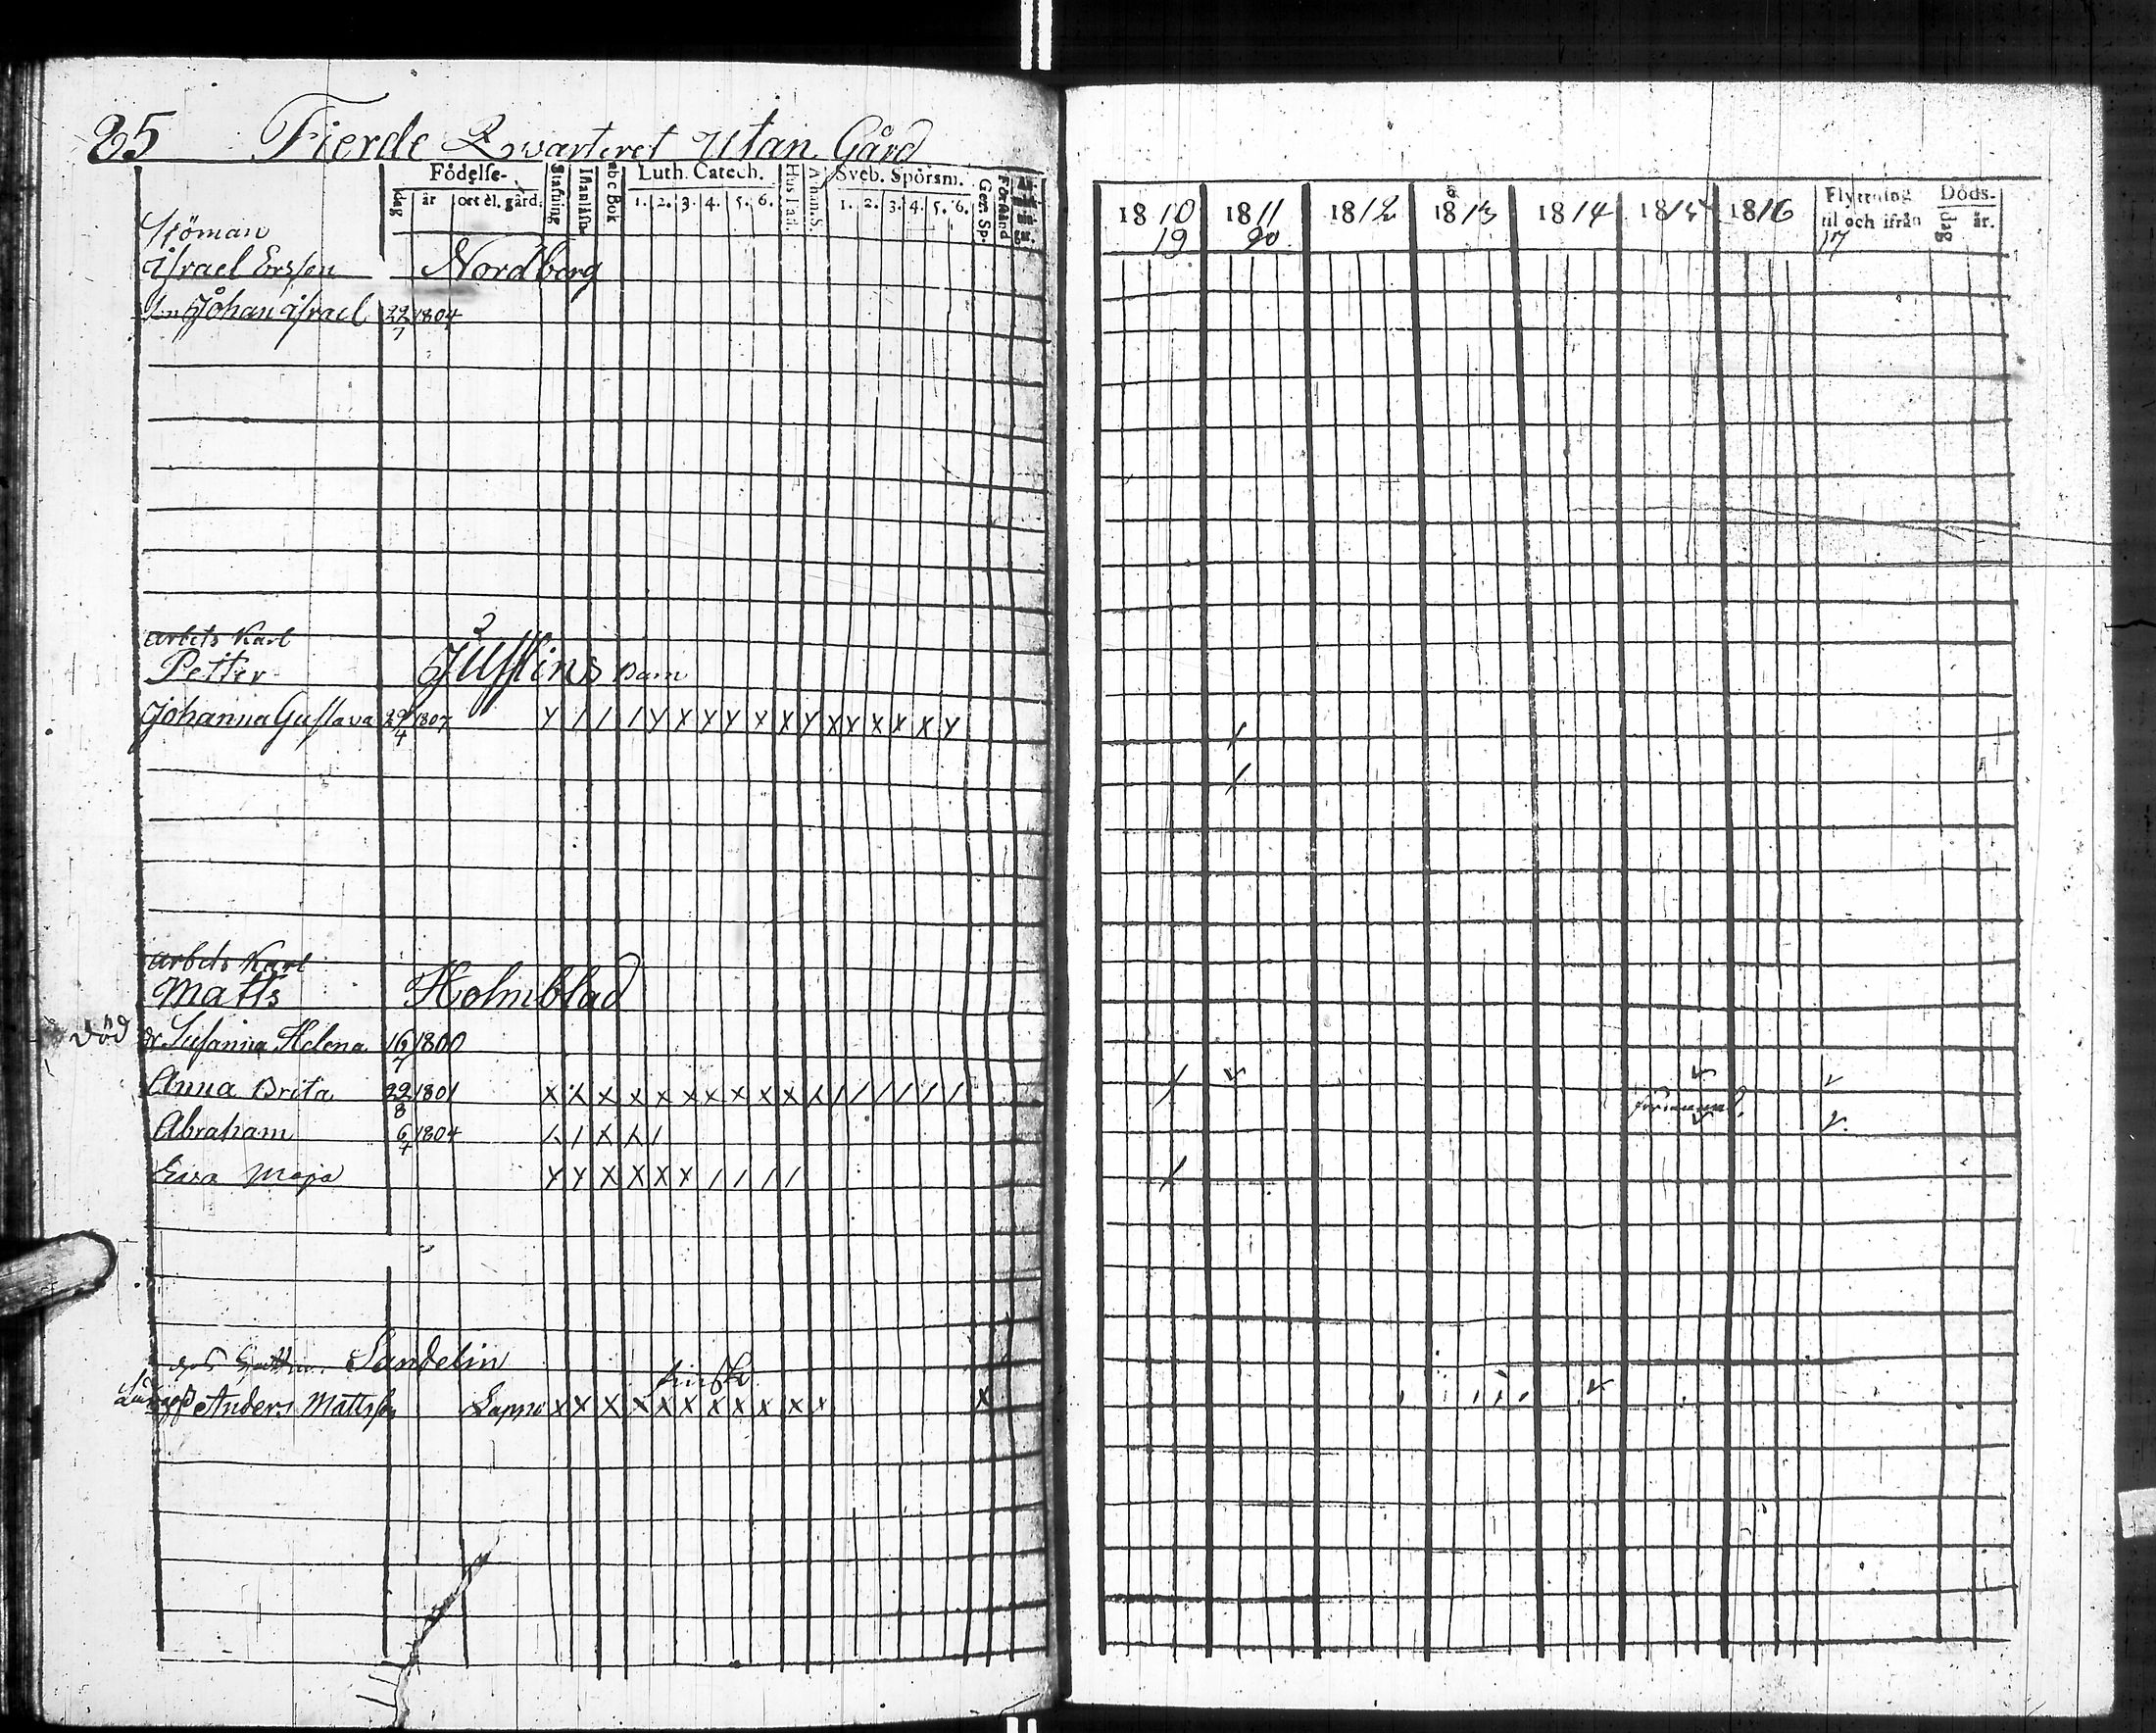 85 Fierde Qwarteret Utan Gård
Födelse-
dag år ort el. gård.
Stafning
Innanläsn.
abc Bok
Luth. Catech.
1. 2. 3. 4. 5. 6.
Hus Tafl.
Athan. S.
Sveb. Spörsm.
1. 2. 3. 4. 5. 6.
Gez. Sp.
Förstånd
An-
märk-
nin-
gar.
Sjöman
Israel Ersson Nordberg
Sn Johan Israel 22/7 1804
arbets Karl
Petter Justlins Barn
Johanna Gustava 29/4 1807 Y / / / Y X Y Y X X Y X Y X X X Y
arbets Karl
Matts Holmblad
död dr Susanna Helena 16/7 1800
Anna Brita 22/8 1801
Abraham 6/4 1804
Eva Maja
Sandelin
finska
Anders Mattsson Lappo
1810 1811 1812 1813 1814 1815 1816
19 20 17
Flyttning
til och ifrån
Döds-
dag år.